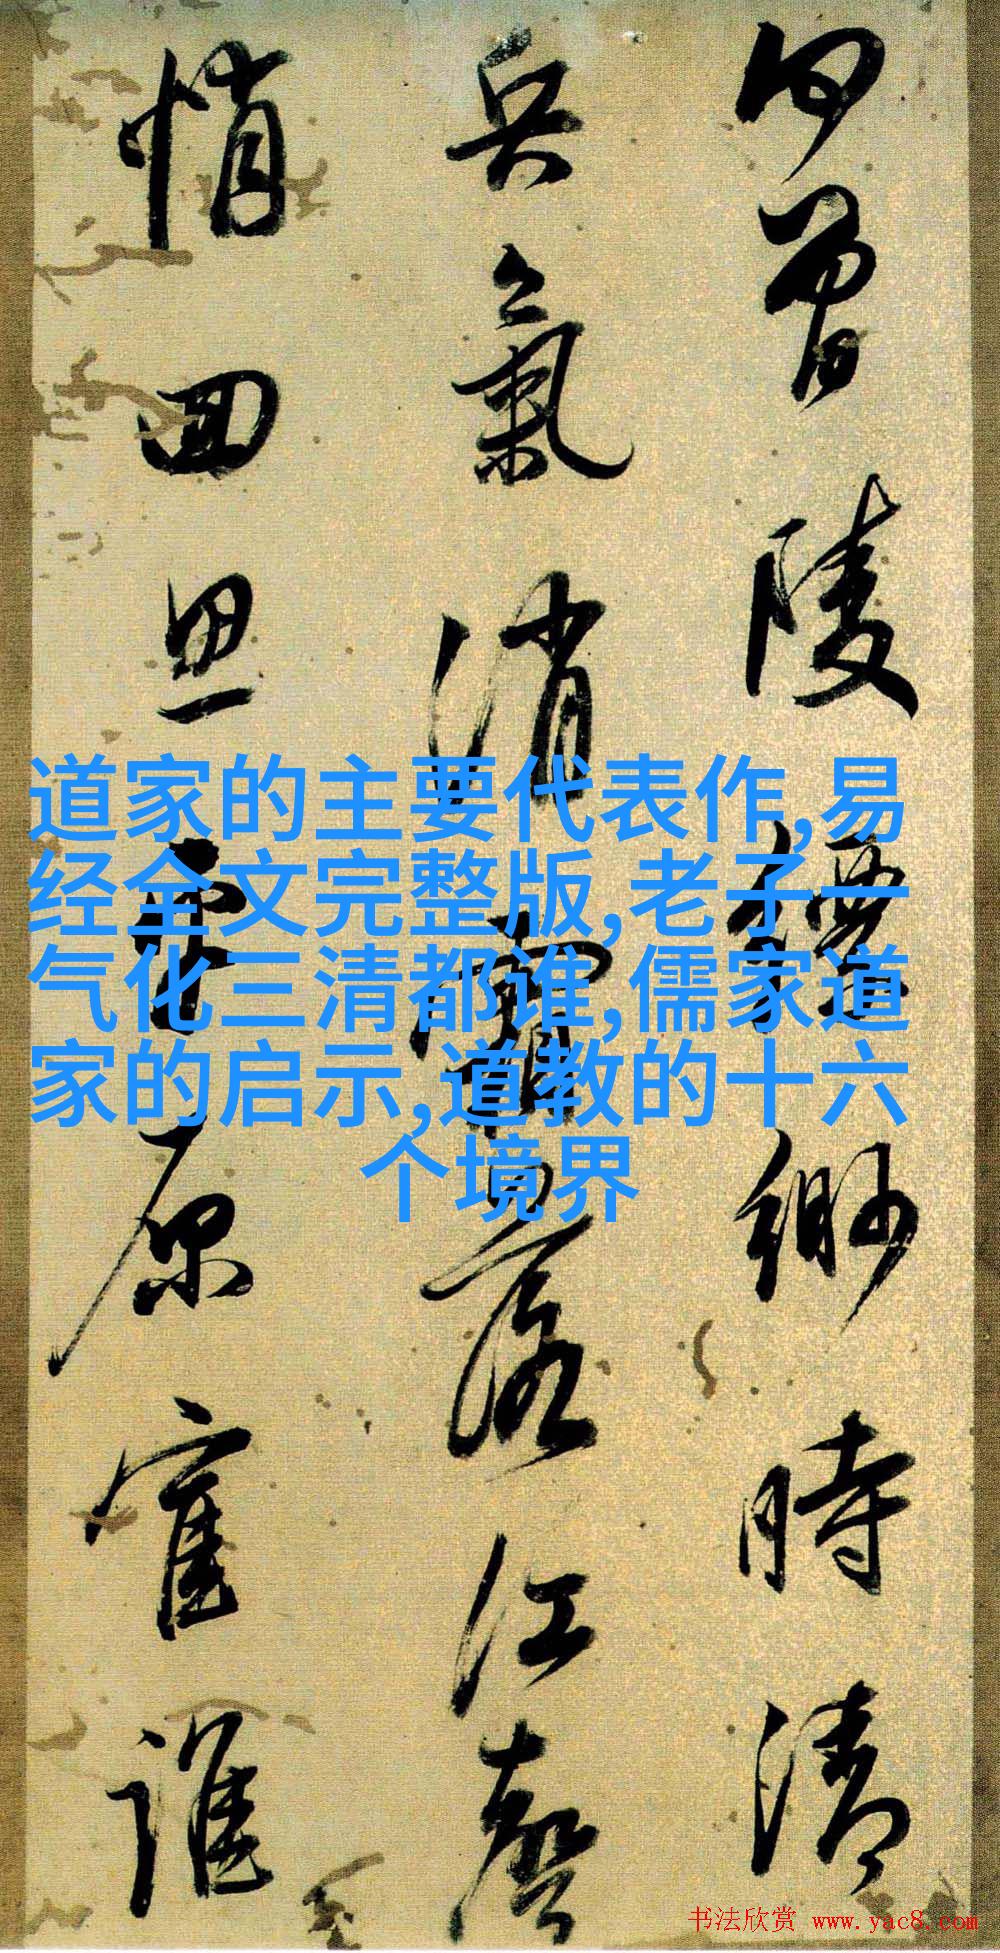 何曾陵缅邈時清
兵氣消霜落江聲
悄回思中原官誰
道家的主要代表作,易
经全文完整版,老子一
气化三清都谁,儒家道
家的启示,道教的十六
个境界
书法欣赏 www.yac8.com